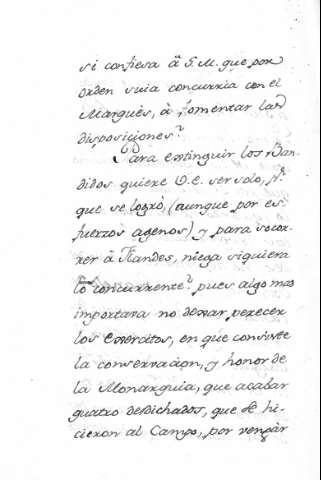 si confiesa â S. M. que por
orden suia concurria con el
Marquès, à fomentar las
disposiciones?
Para extinguir los Ban-
didos quiere V. E. ser solo, pr.
que se logrò, (aunque por es-
fuerzos agenos) y para socor-
rer â Flandes, niega siquiera
lo concurrente? pues algo mas
importara no dexar perecer
los Exercitos, en que consiste
la conservacion, y honor de
la Monarquia, que acabar
quatro desdichados, que se hi-
cieron al Campo, por vengàr